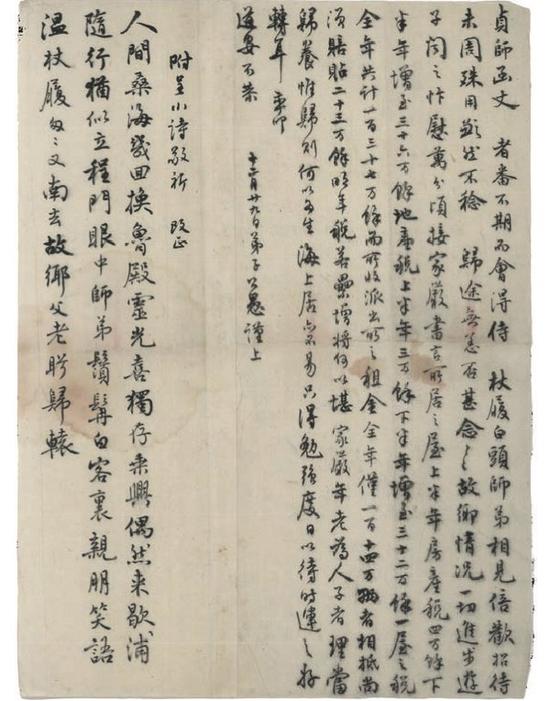 貞師函丈 者番不期而會得侍 杖履白頭師弟相見倍歡招待
未周殊用歉然不稔 歸途無恙否甚念々故鄉情況一切進步遊
子聞之忭慰萬分頃接家嚴書言所居之屋上半年房產稅四万餘下
半年增至三十六万餘地產稅上半年三万餘下半年增至三十二万餘一屋之稅
全年共計一百三十七万餘而所收派出所之租金全年僅一百十四万兩者相抵尚
須賠貼二十三万餘明年稅若纍增將何以堪家嚴年老為人子者理當
歸養惟歸則何以為生海上居亦不易只得勉強度日以待時運之好
轉耳 專叩
道安不恭
十二月廿九日弟子公愚謹上
附呈小詩敬祈 改正
人間桑海幾回換魯殿靈光喜獨存乘興偶然来歇浦
隨行猶似立程門眼中師弟鬚髯白客裏親朋笑語
温杖履匆々又南去故鄉父老盼歸轅